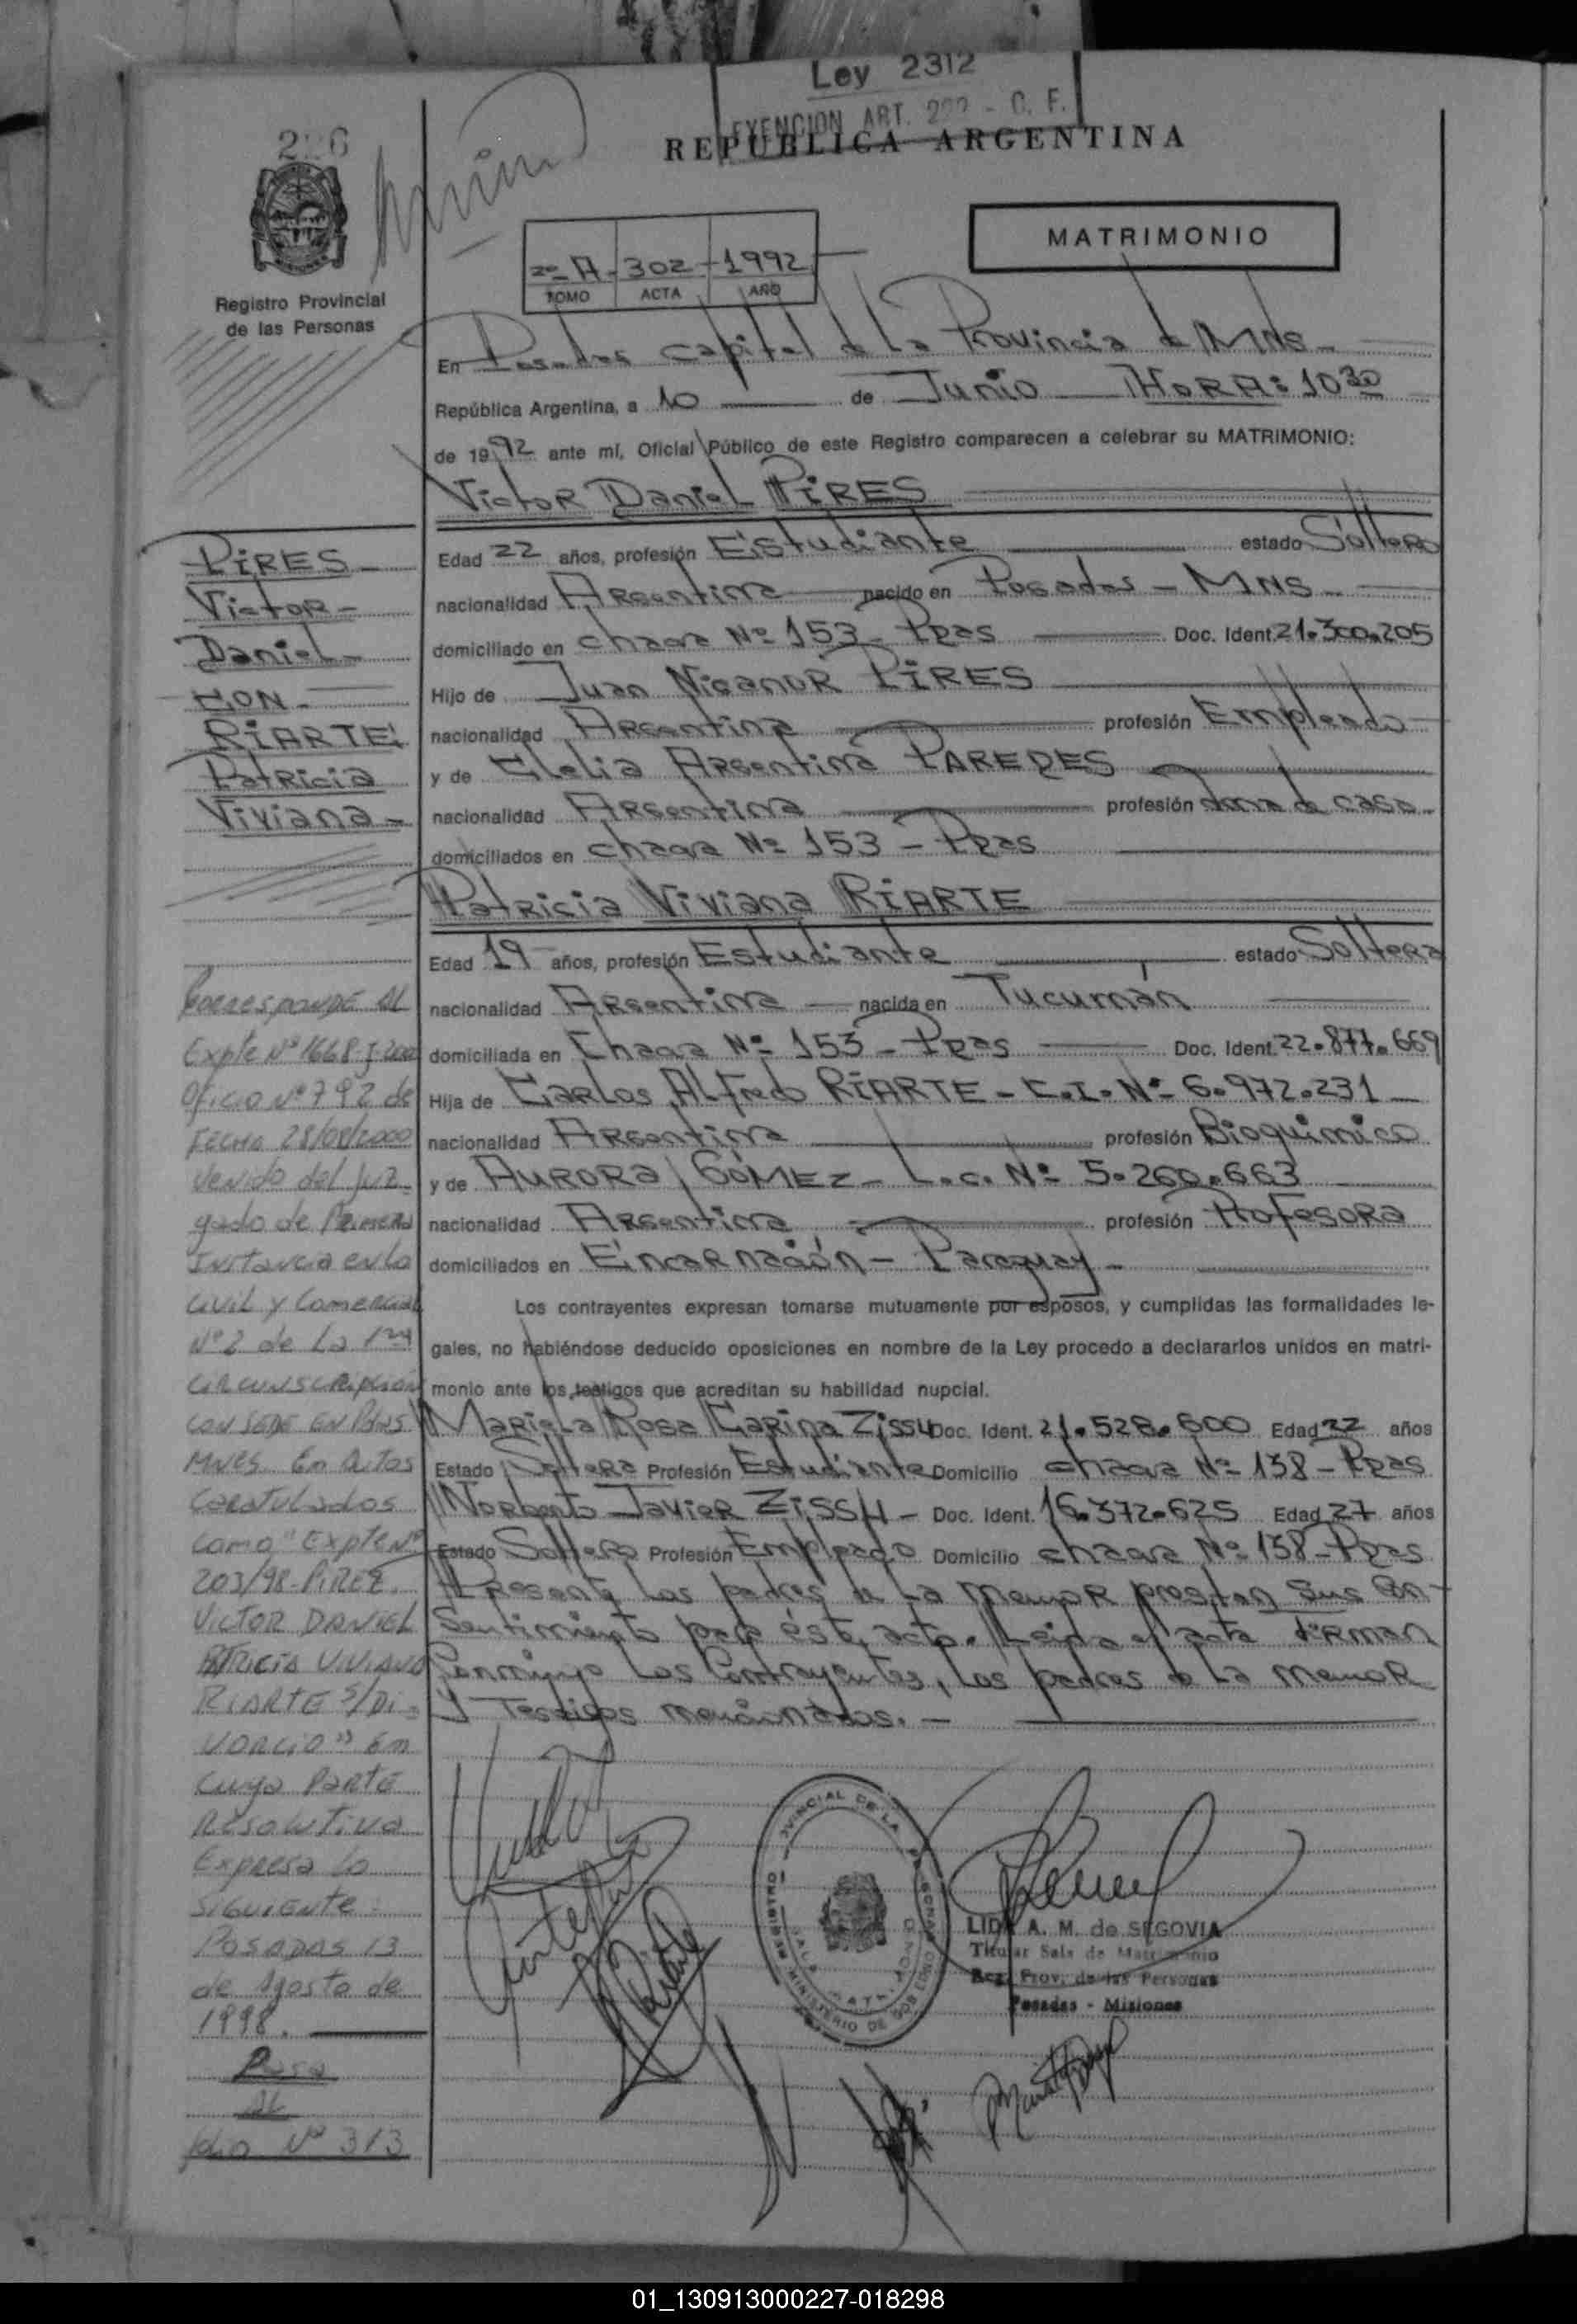 Ley 2312
EXENCION ART. - C. F.
REPUBLICA ARGENTINA
MATRIMONIO
2º A - 302 - 1992
TOMO ACTA AÑO
Registro Provincial
de las Personas
En Posadas capital de la Provincia de MNS -
República Argentina, a 10 de Junio HORA: 10 30
de 1992 ante mí, Oficial Público de este Registro comparecen a celebrar su MATRIMONIO:
Victor Daniel PIRES
Edad 22 años, profesión Estudiante estado Soltero
nacionalidad Argentina nacido en Posadas - MNS -
domiciliado en chacra Nº 153 - Pdas Doc. Ident. 21.300.205
Hijo de Juan Nicanor PIRES
nacionalidad Argentina profesión Empleado
y de Clelia Argentina PAREDES
nacionalidad Argentina profesión ama de casa -
domiciliados en chacra Nº 153 - Pdas
Patricia Viviana RIARTE
Edad 19 años, profesión Estudiante estado Soltera
nacionalidad Argentina nacida en Tucumán
domiciliada en Chacra Nº 153 - Pdas Doc. Ident. 22.877.669
Hija de Carlos Alfredo RIARTE - C.I. Nº 6.972.231 -
nacionalidad Argentina profesión Bioquimico
y de AURORA GÓMEZ - L.C. Nº 5.260.663
nacionalidad Argentina profesión Profesora
domiciliados en Encarnación - Paraguay -
Los contrayentes expresan tomarse mutuamente por esposos, y cumplidas las formalidades le-
gales, no habiéndose deducido oposiciones en nombre de la Ley procedo a declararlos unidos en matri-
monio ante los testigos que acreditan su habilidad nupcial.
Mariela Rosa Carina Zissu Doc. Ident. 21.528.600 Edad 22 años
Estado Soltera Profesión Estudiante Domicilio chacra Nº 138 - Pdas
Norberto Javier ZISSU - Doc. Ident. 16.372.625 Edad 27 años
Estado Soltero Profesión Empleado Domicilio chacra Nº 138 - Pdas
Presente los padres de la menor prestan sus con-
sentimiento para éste acto. Leida el acta firman
conmigo los contrayentes, los padres de la menor
y Testigos mencionados. -
PIRES -
Victor -
Daniel -
CON -
RIARTE
Patricia
Viviana -
Corresponde al
Expte Nº 1668-J-2000
Oficio Nº 792 de
FECHA 28/08/2000
venido del Juz-
gado de Primera
Instancia en lo
Civil y Comercial
Nº 2 de La 1ra
Circunscripción
CON SEDE EN Pdas
Mnes. En Autos
Caratulados
Como "Expte Nº
203/98 - PIRES
VICTOR DANIEL
PATRICIA VIVIANA
RIARTE S/ Di-
vorcio" En
cuya Parte
Resolutiva
Expresa lo
siguiente:
Posadas 13
de Agosto de
1998.
Pasa
al
folio Nº 313
LIDA A. M. de SEGOVIA
Titular Sala de Matrimonio
Reg. Prov. de las Personas
Posadas - Misiones
01_130913000227-018298